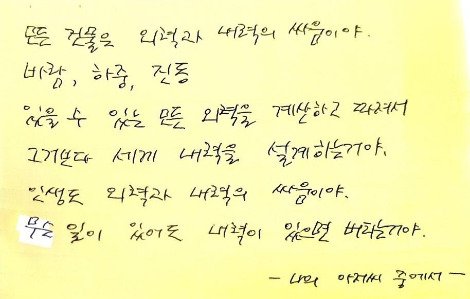 모든 건물은 외력과 내력의 싸움이야.
바람, 하중, 진동
있을 수 있는 모든 외력을 계산하고 따져서
그거보다 세게 내력을 설계하는거야.
인생도 외력과 내력의 싸움이야.
무슨 일이 있어도 내력이 있으면 버티는거야.
- 나의 아저씨 중에서 -